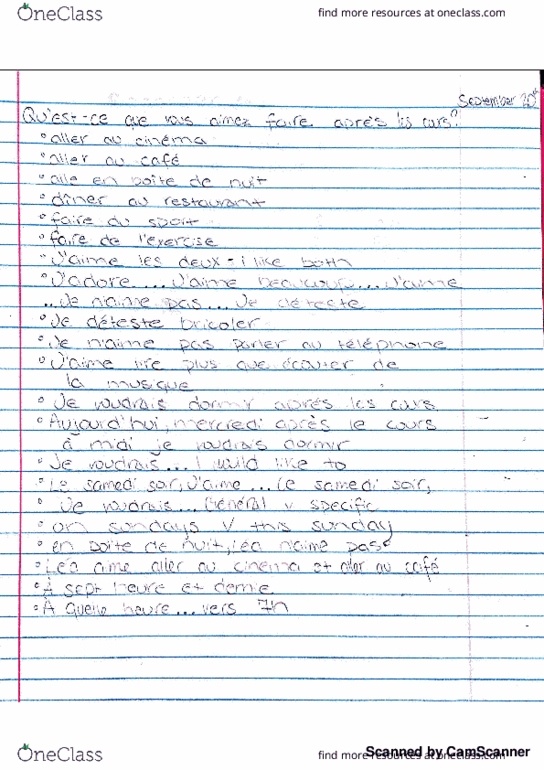 OneClass
find more resources at oneclass.com
September 20th
Qu'est-ce que vous aimez faire après les cours?
° aller au cinéma
° aller au café
° alle en boîte de nuit
° dîner au restaurant
° faire du sport
° faire de l'exercise
° J'aime les deux - i like both
° J'adore ... J'aime beaucoup ... J'aime
... Je n'aime pas ... Je déteste
° Je déteste bricoler
° Je n'aime pas parler au téléphone
° J'aime lire plus que écouter de
la musique
° Je voudrais dormir après les cours
° Aujourd'hui, mercredi après le cours
à midi je voudrais dormir
° Je voudrais ... I would like to
° Le samedi soir, J'aime ... Ce samedi soir,
° Je voudrais ... Général v specific
° on sundays v this sunday
° en boîte de nuit, Léa n'aime pas
° Léa aime aller au cinéma et aller au café
° À sept heure et demie
° À quelle heure ... vers 7h
OneClass
find more resources at oneclass.com
Scanned by CamScanner